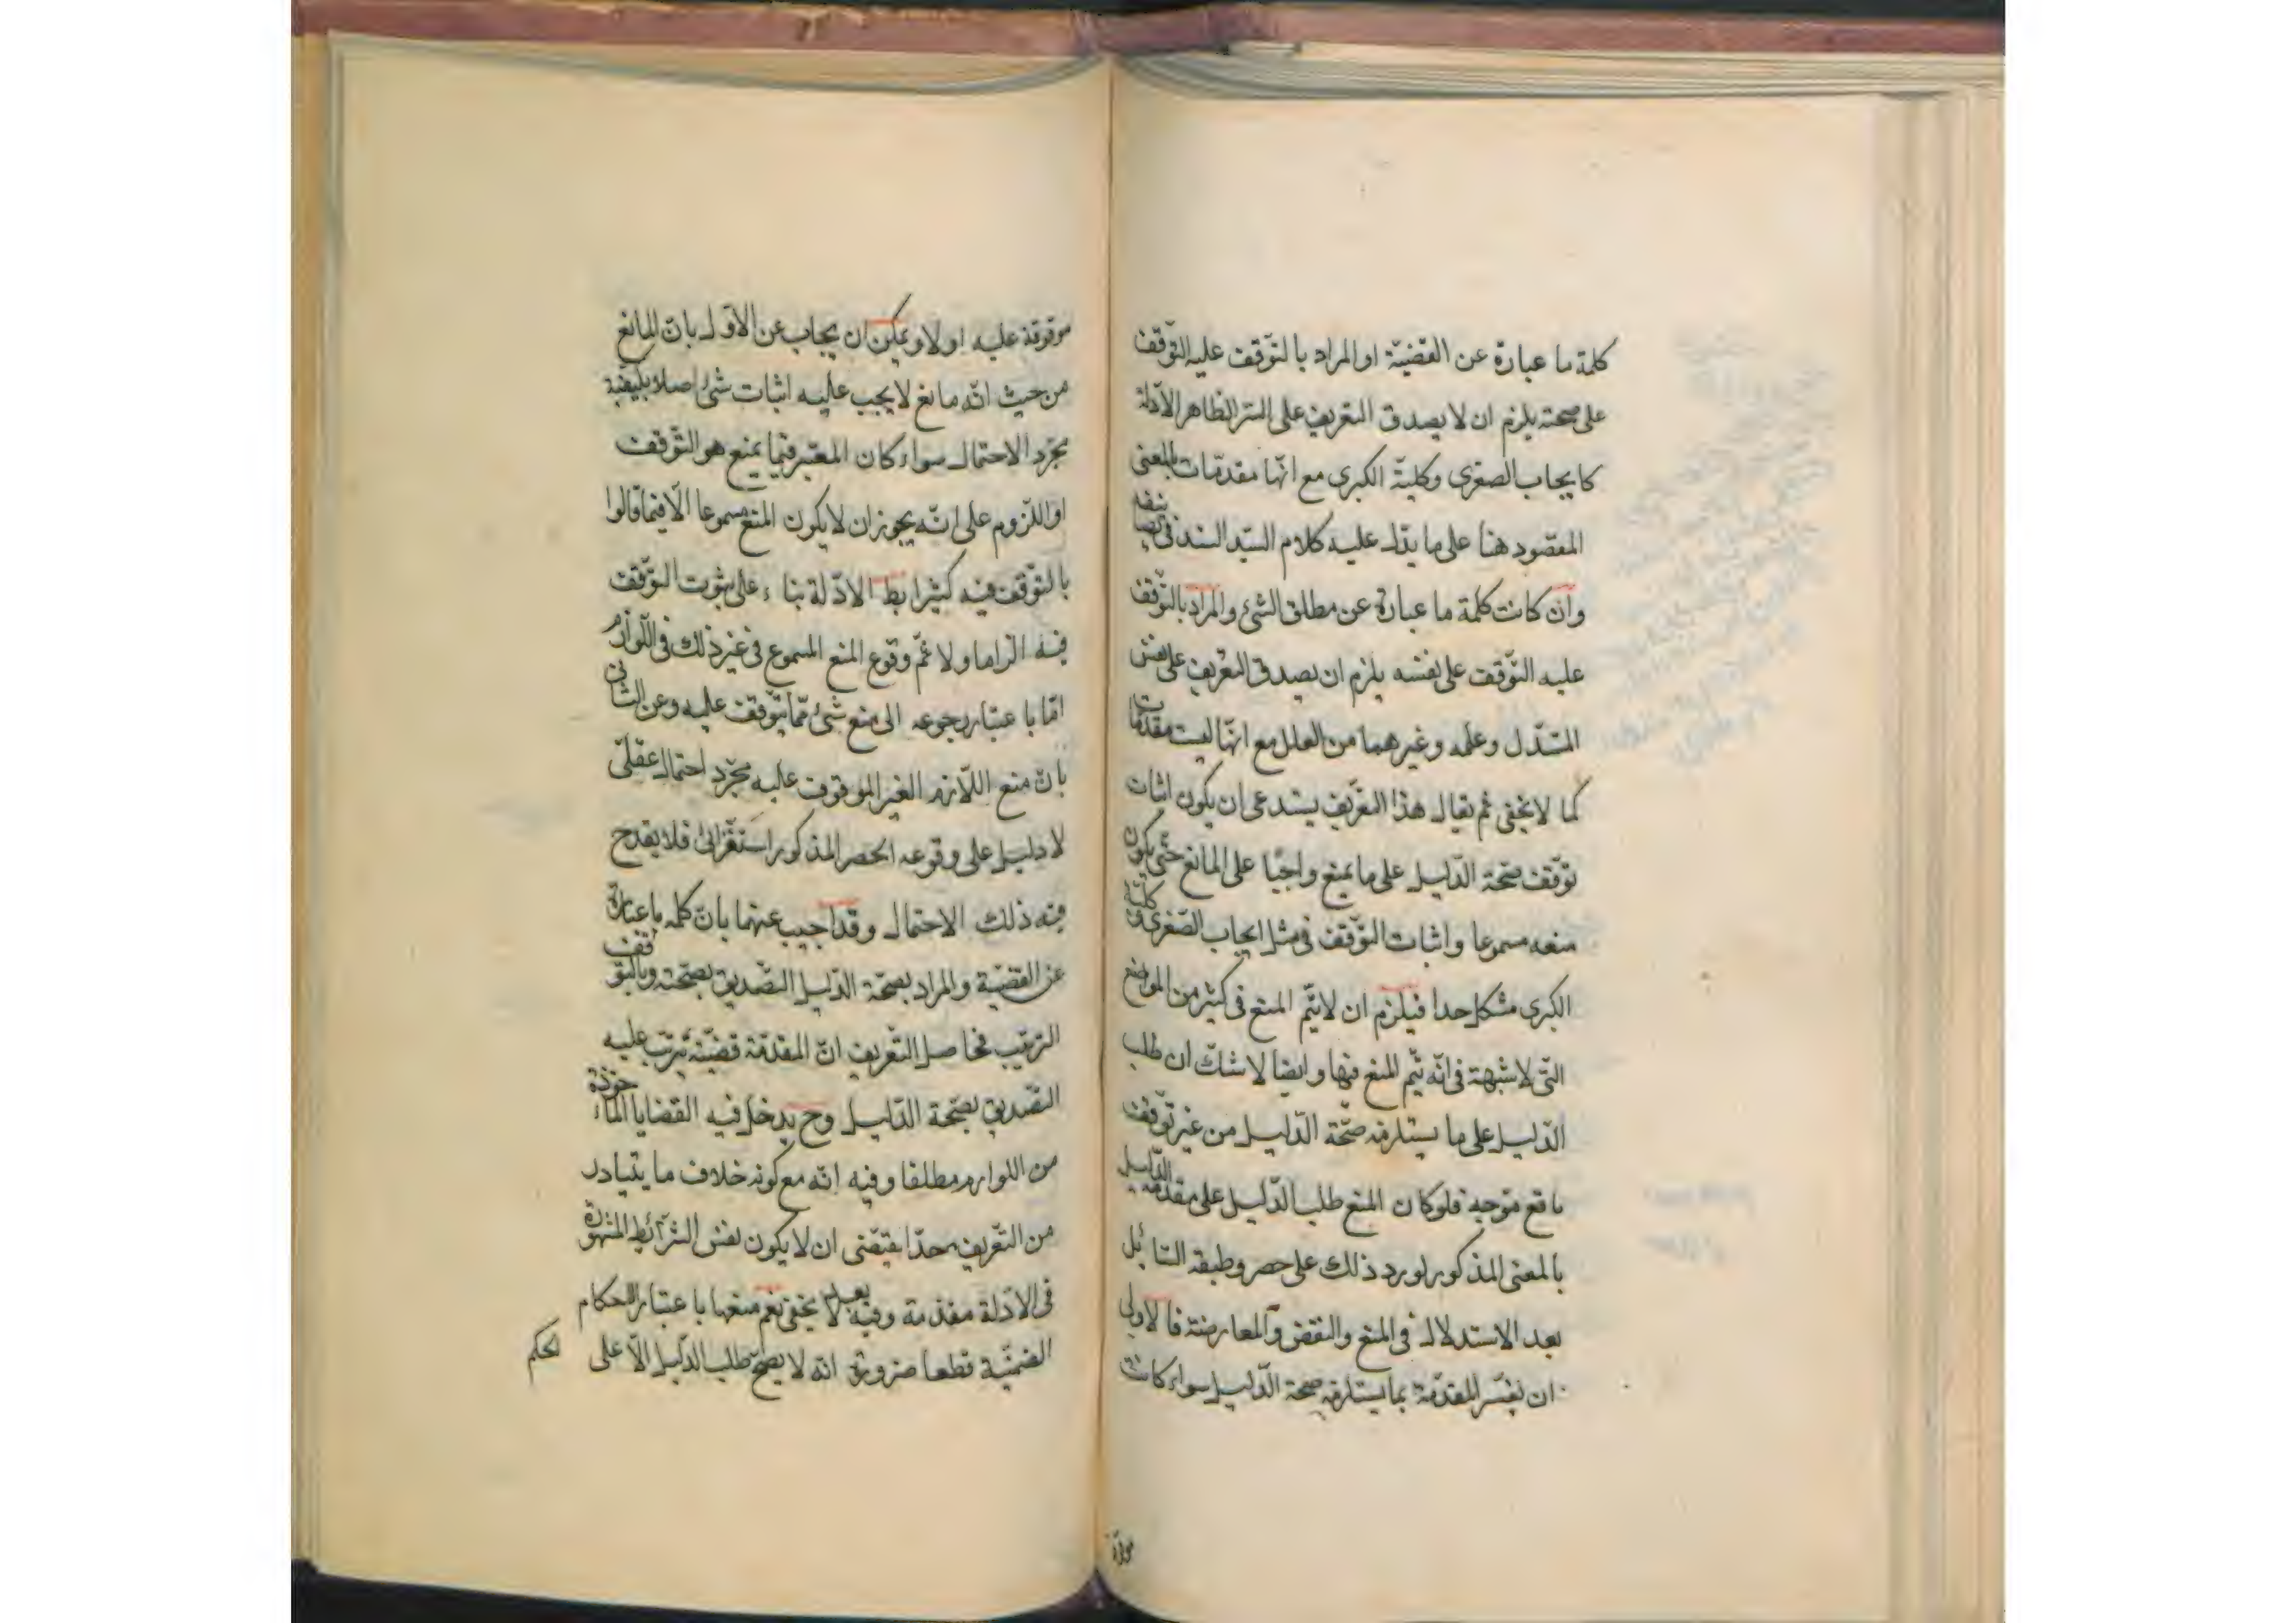 كلمة ما عبارة عن القضيّة او المراد بالتوّقف عليه التوّقف
على صحته يلزم ان لا يصدق التعريف على الشرائط الادلّة
كايجاب الصغرى وكليّة الكبرى مع انّها مقدمات بالمعنى
المقصود هنا على ما يدّل عليه كلام السيّد السند فى تصانيفه
وان كانت كلمة ما عبارة عن مطلق الشئ والمراد بالتّوقف
عليه التّوقف على نفسه يلزم ان يصدق التعريف على نفس
المستدّل وعلمه وغيرهما من العلل مع انّها ليست مقدّمات
كما لا يخفى ثم يقال هذا التعّريف يستدعى ان يكون اثبات
توّقف صّحة الدّليل على ما يمنع واجبًا على المانع حتّى يكون
منعه مسموعا واثبات التوّقف فى مثل ايجاب الصّغرى و كليّة
الكبرى مشكل جدا فيلزم ان لا يتّم المنع فى كثير من المواضع
التّى لا شبهة فى انّه يتّم المنع فيها وايضا لا شكّ ان طلب
الدّليل على ما يستلزمه صّحة الدّليل من غير توّقف
ما قع متوّجه فلو كان المنع طلب الدّليل على مقدّمة الدّليل
بالمعنى المذكور لورد ذلك على حصر وظيفة السّائل
بعد الاستدلال فى المنع والنقض والمعارضة فالاولى
ان يفسّر المقدّمة بما يستلزمه صحة الدّليل سواء كانت
موقوفة
موقوفة عليه او لا ويمكن ان يجاب عن الاوّل بانّ المانع
من حيث انّه مانع لا يجب عليه اثبات شئ اصلا بل يكفيه
مجرّد الاحتمال سواء كان المعتبر فيما يمنع هو التّوقف
او اللّزوم على انّه يجوز ان لا يكون المنع مسموعا الّا فيما قالوا
بالتوّقف فيه كشرائط الادّلة بناء على ثبوت التوّقف
فيه الزاما ولا ثمّ وقوع المنع المسموع فى غير ذلك فى اللّوازم
امّا باعتبار رجوعه الى منع شئ ممّا يتوّقف عليه وعن الثانى
بانّ منع اللّازم الغير الموقوف عليه مجرّد احتمال عقلىّ
لا دليل على وقوعه الحصر المذكور استقرائى فلا يقدح
فيه ذلك الاحتمال وقد اجيب عنهما بانّ كلمه ما عبارة
عن القضيّة والمراد بصّحة الدّليل التصّديق بصّحته وبالتوّقف
الترتيب فحاصل التّعريف انّ المقدّمة قضيّة يترتب عليه
التصّديق بصّحة الدّليل وح يدخل فيه القضايا المأخوذة
من اللوازم مطلقا وفيه انّه مع كونه خلاف ما يتبادر
من التّعريف جدّا يقتضى ان لا يكون نفس الشرّائط المشهورة
فى الادّلة مقدّمة وفيه بعد لا يخفى نعم منعها باعتبار الاحكام
الضمنيّة قطعا ضرورة انّه لا يصّح طلب الدّليل الّا على
الحكم